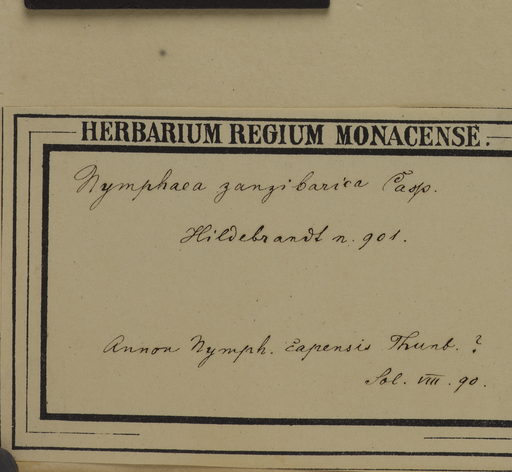 HERBARIUM REGIUM MONACENSE.
Nymphaea zanzibarica Casp.
Hildebrandt n. 901.
Annon Nymph. capensis Thunb. ?
Sol. VIII. 90.